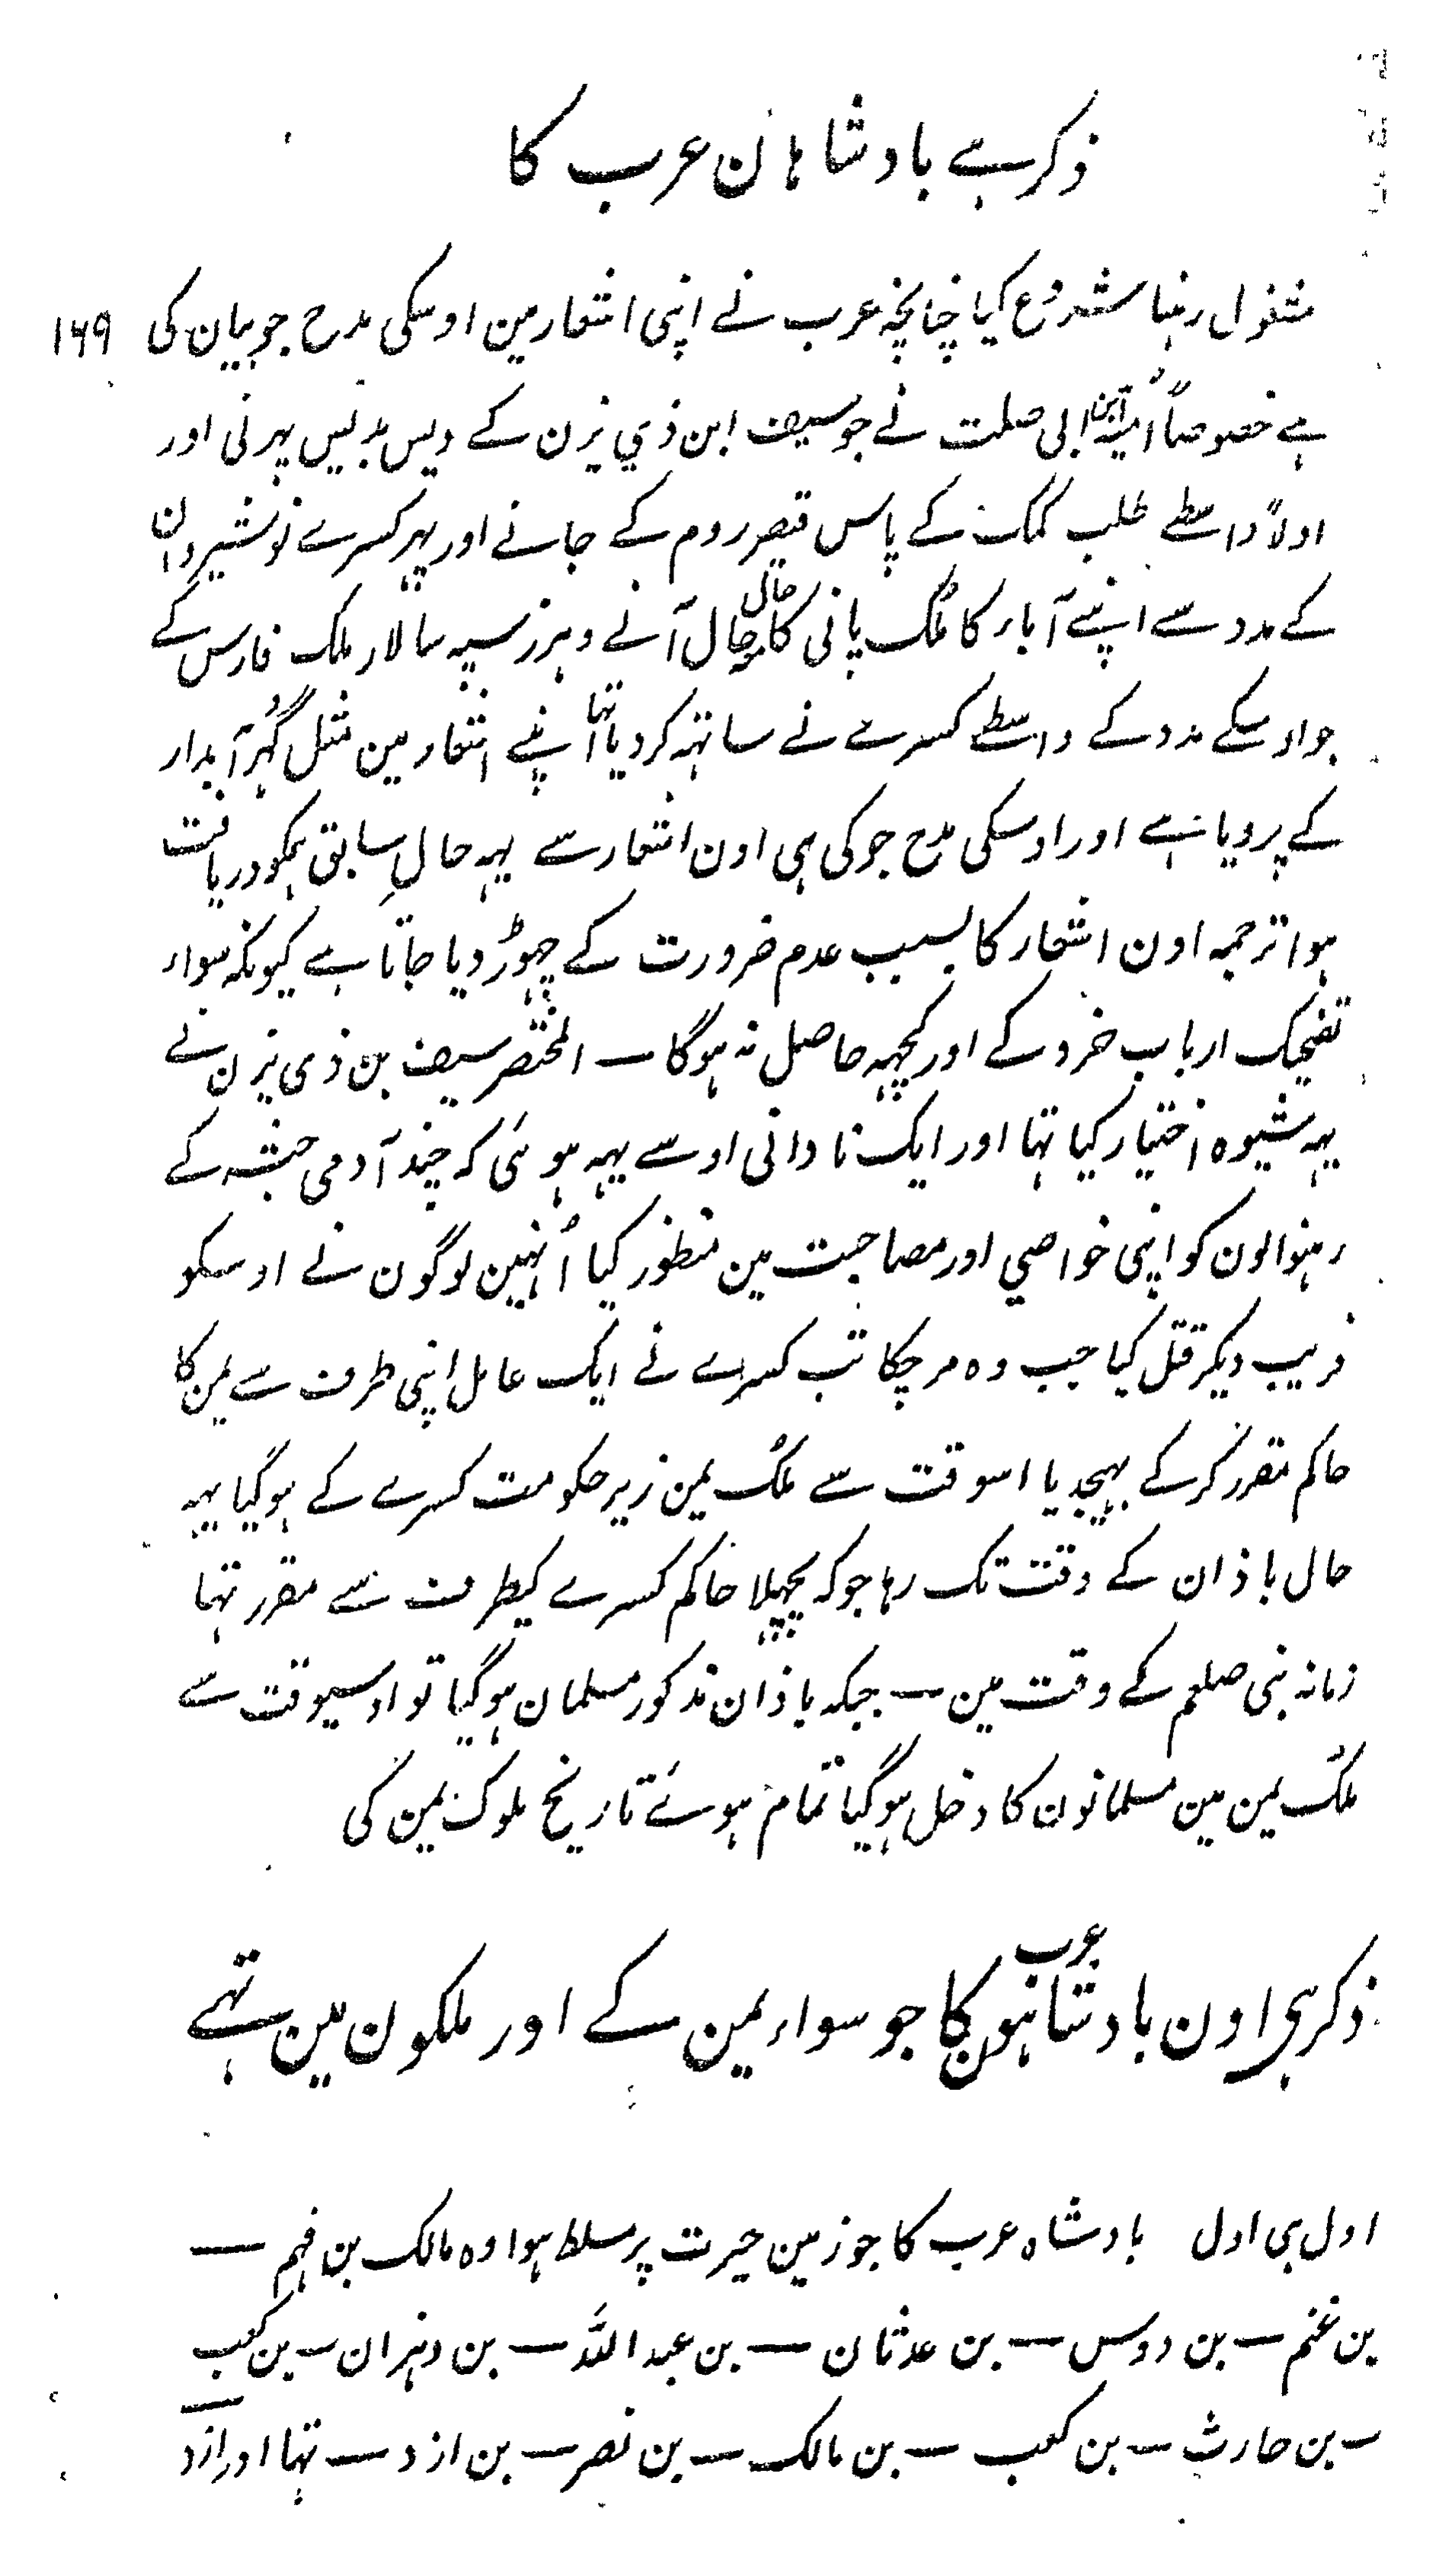 ذکر ہے بادشاہان عرب کا
مشغول رہنا شروع کیا چنانچہ عرب نے اپنی اشعار مین اوسکی مدح جو بیان کی ۱۶۹
ہے خصوصاً اُمیّہ ابن ابی صلت نے جو سیف ابن ذي یزن کے دیس بدیس پہرنی اور
اولاً واسطے طلب کمک کے پاس قیصر روم کے جانے اور پہر کسرے نوشیروان
کے مدد سے اپنے آباء کا مُلک پانی کا حال مآل آنے وہرز سپہ سالار ملک فارس کے
جو اوسکے مدد کے واسطے کسرے نے ساتہہ کر دیا تہا اپنے اشعار مین مثل گُہر آبدار
کے پرویا ہے اور اوسکی مدح جو کی ہی اون اشعار سے یہہ حالِ سابق ہمکو دریافت
ہوا ترجمہ اون اشعار کا بسبب عدم ضرورت کے چہوڑ دیا جاتا ہے کیونکہ سواء
تضحیک ارباب خرد کے اور کچہہ حاصل نہ ہوگا — المختصر سیف بن ذی یزن نے
یہہ شیوہ اختیار کیا تہا اور ایک نادانی اوسے یہہ ہوئی کہ چند آدمی حبشہ کے
رہنوالون کو اپنی خواصي اور مصاحبت مین منظور کیا اُنہین لوگون نے اوسکو
فریب دیکر قتل کیا جب وہ مر چکا تب کسرے نے ایک عامل اپنی طرف سے یمن کا
حاکم مقرر کرکے بہیجدیا اسوقت سے ملک یمن زیر حکومت کسرے کے ہوگیا یہہ
حال باذان کے وقت تک رہا جو کہ پچہلا حاکم کسرے کیطرف سے مقرر تہا
زمانہ نبی صلعم کے وقت مین — جبکہ باذان مذکور مسلمان ہوگیا تو اوسیوقت سے
ملک یمن مین مسلمانون کا دخل ہوگیا تمام ہوئے تاریخ ملوک یمن کی
ذکر ہی اون بادشاہون عرب کا جو سواء یمن کے اور ملکون مین تہے
اول ہی اول بادشاہ عرب کا جو زمین حیرت پر مسلط ہوا وہ مالک بن فہم —
بن غنم — بن دوس — بن عدثان — بن عبد اللہ — بن وہزان — بن کعب
— بن حارث — بن کعب — بن مالک — بن نصر — بن ازد — تہا اور ازد